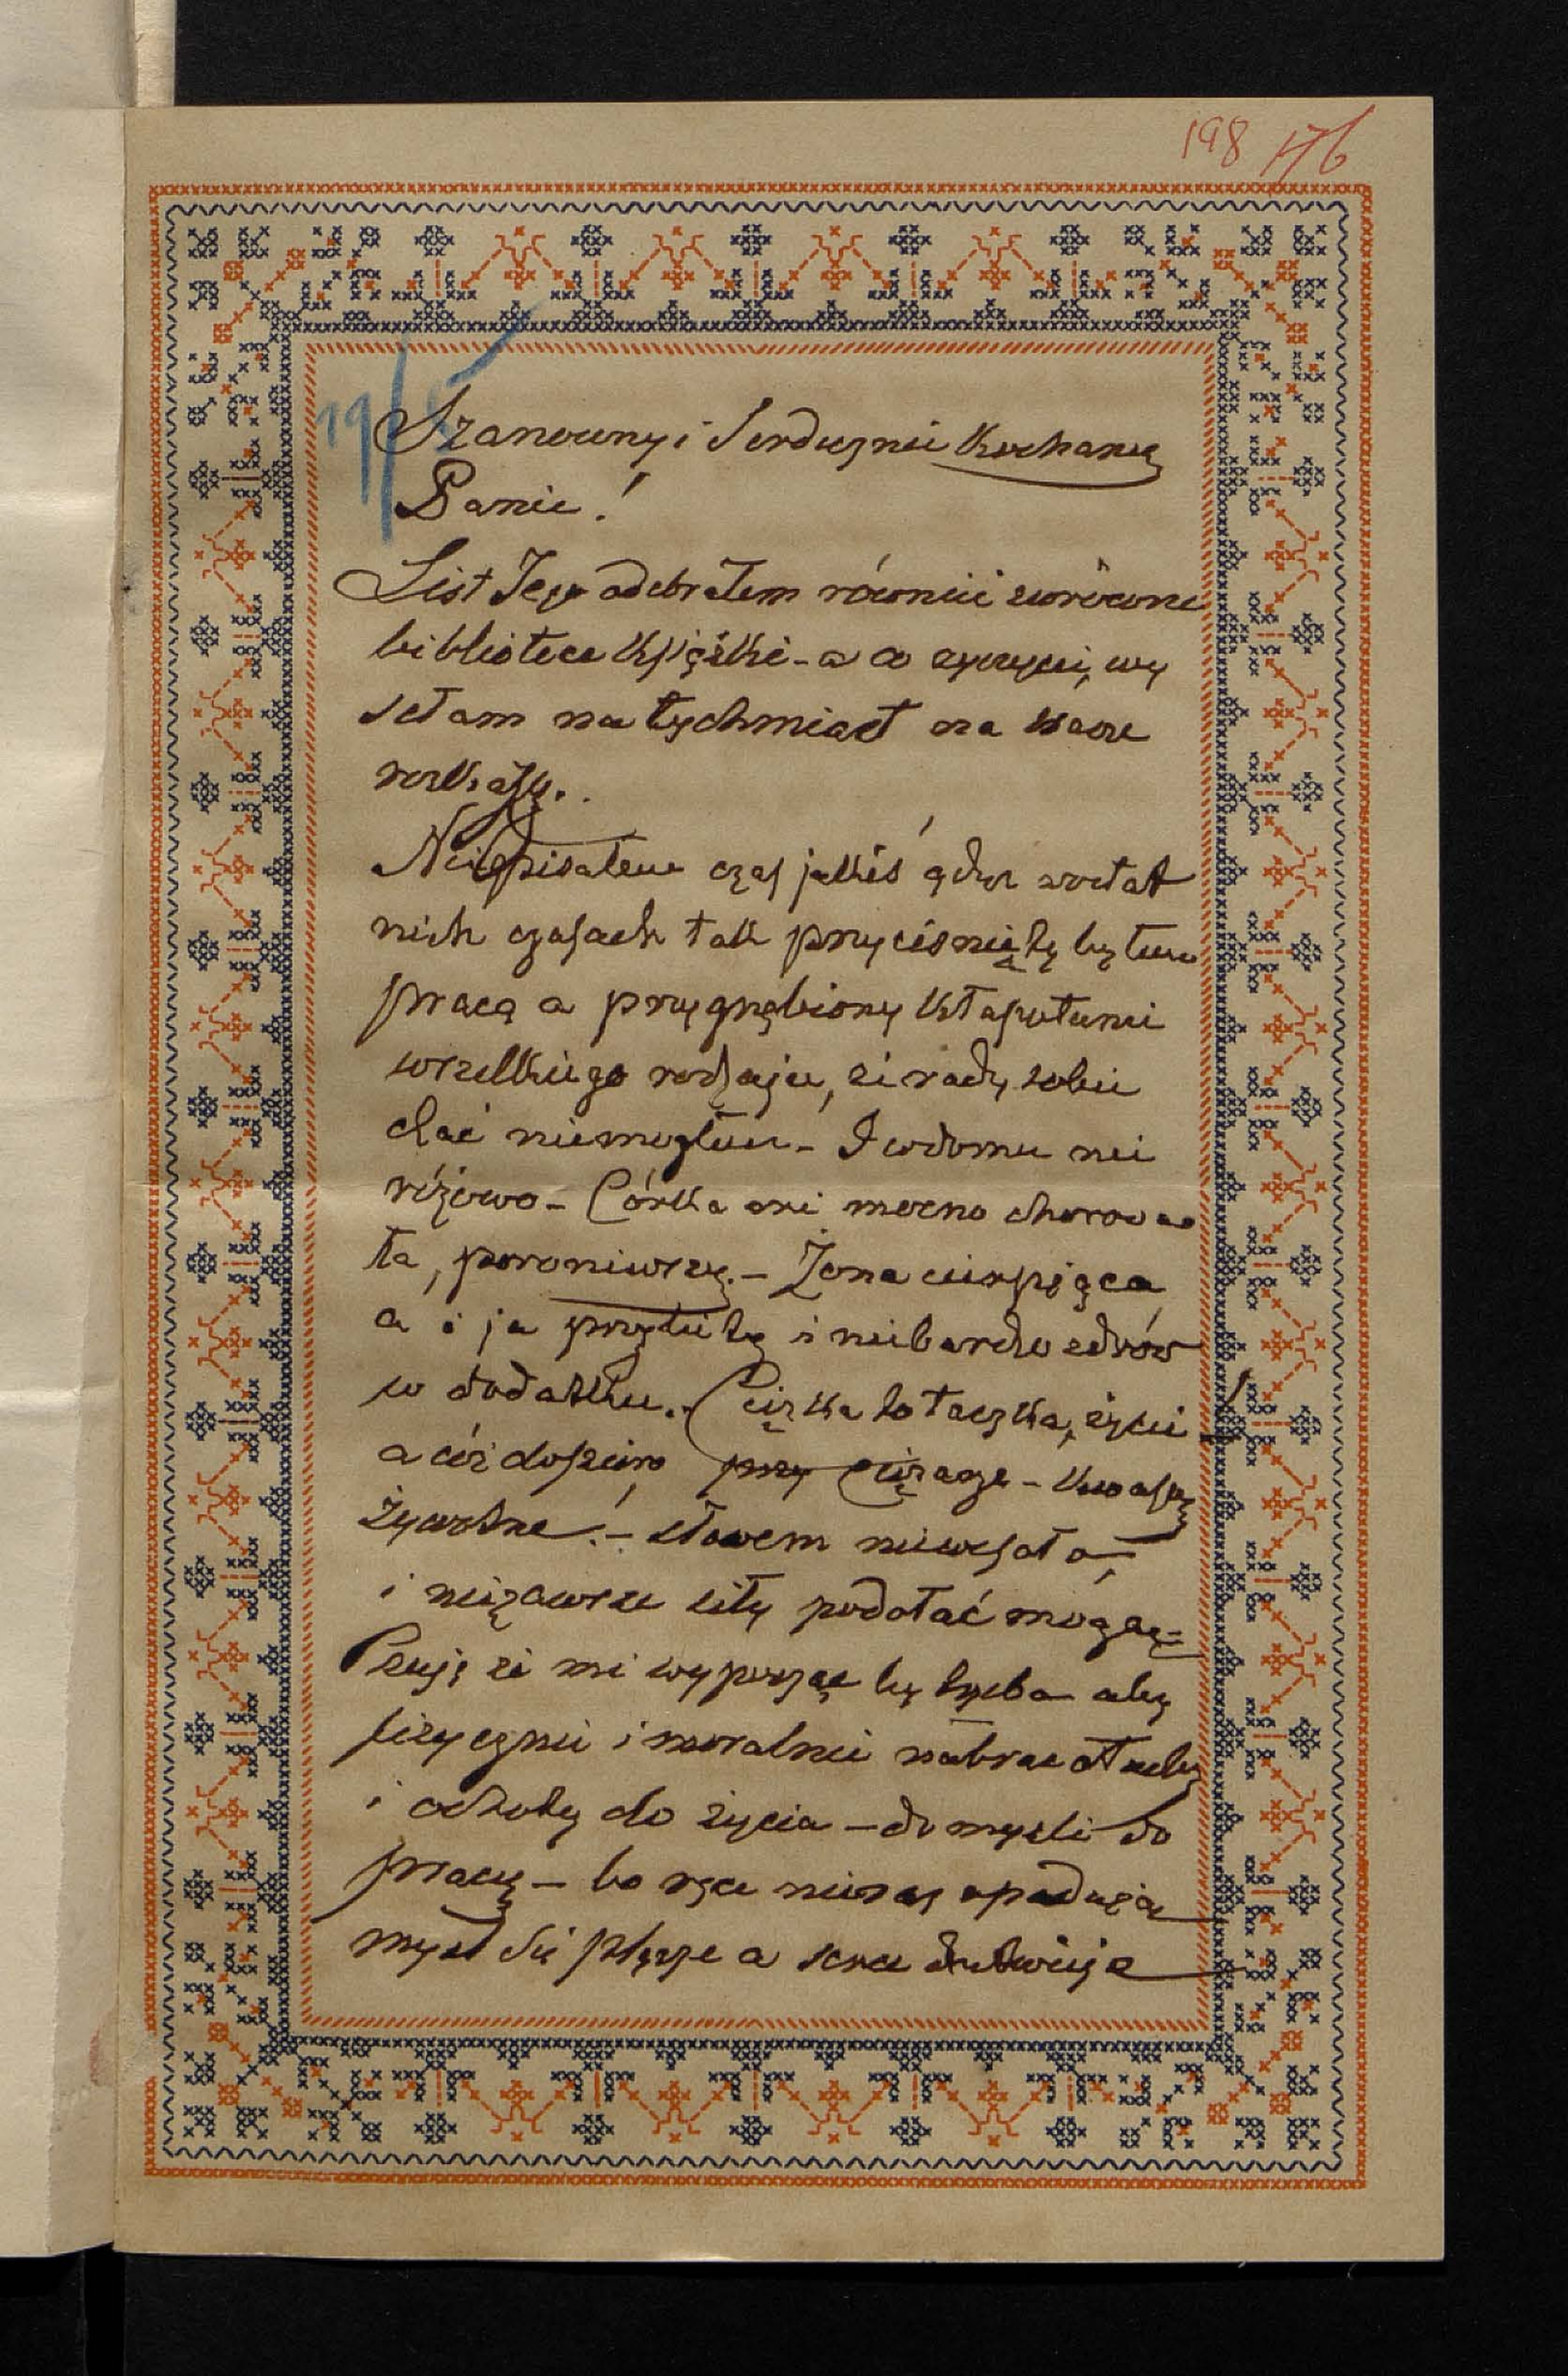 198 176
Szanowny i Serdecznie Kochany
Panie!
List Jego odebrałem również zwrócone
bibliotece książki - a co życzycie, wy
sełam natychmiast na Wasze
rozkazy.
Nie pisałem czas jakiś gdyż w ostat
nich czasach tak przyciśnięty byłem
pracą a przygnębiony kłapotami
wszelkiego rodzaju, że rady sobie
dać niemogłem - I w domu nie
różowo - Córka mi mocno chorowa
ła, poroniwszy. - Żona cierpiąca
a i ja przybity i niebardzo zdrów
w dodatku. - Ciężka to taczka, życie
a cóż dopiero, przy ciężarze - kwasy
żywotne! - słowem niewesoło
i niezawsze siły podołać mogą -
Czuję że mi wypocząć by trzeba aby
fizycznie i moralnie nabrać otuchy
i ochoty do życia - do myśli do
pracy - bo ręce nieraz opadają
myśl się plącze a serce drętwieje